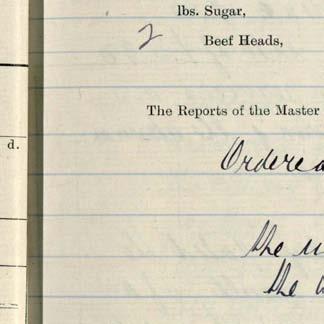 lbs. Sugar,
2 Beef Heads,
The Reports of the Master
d.
Ordered
the
the